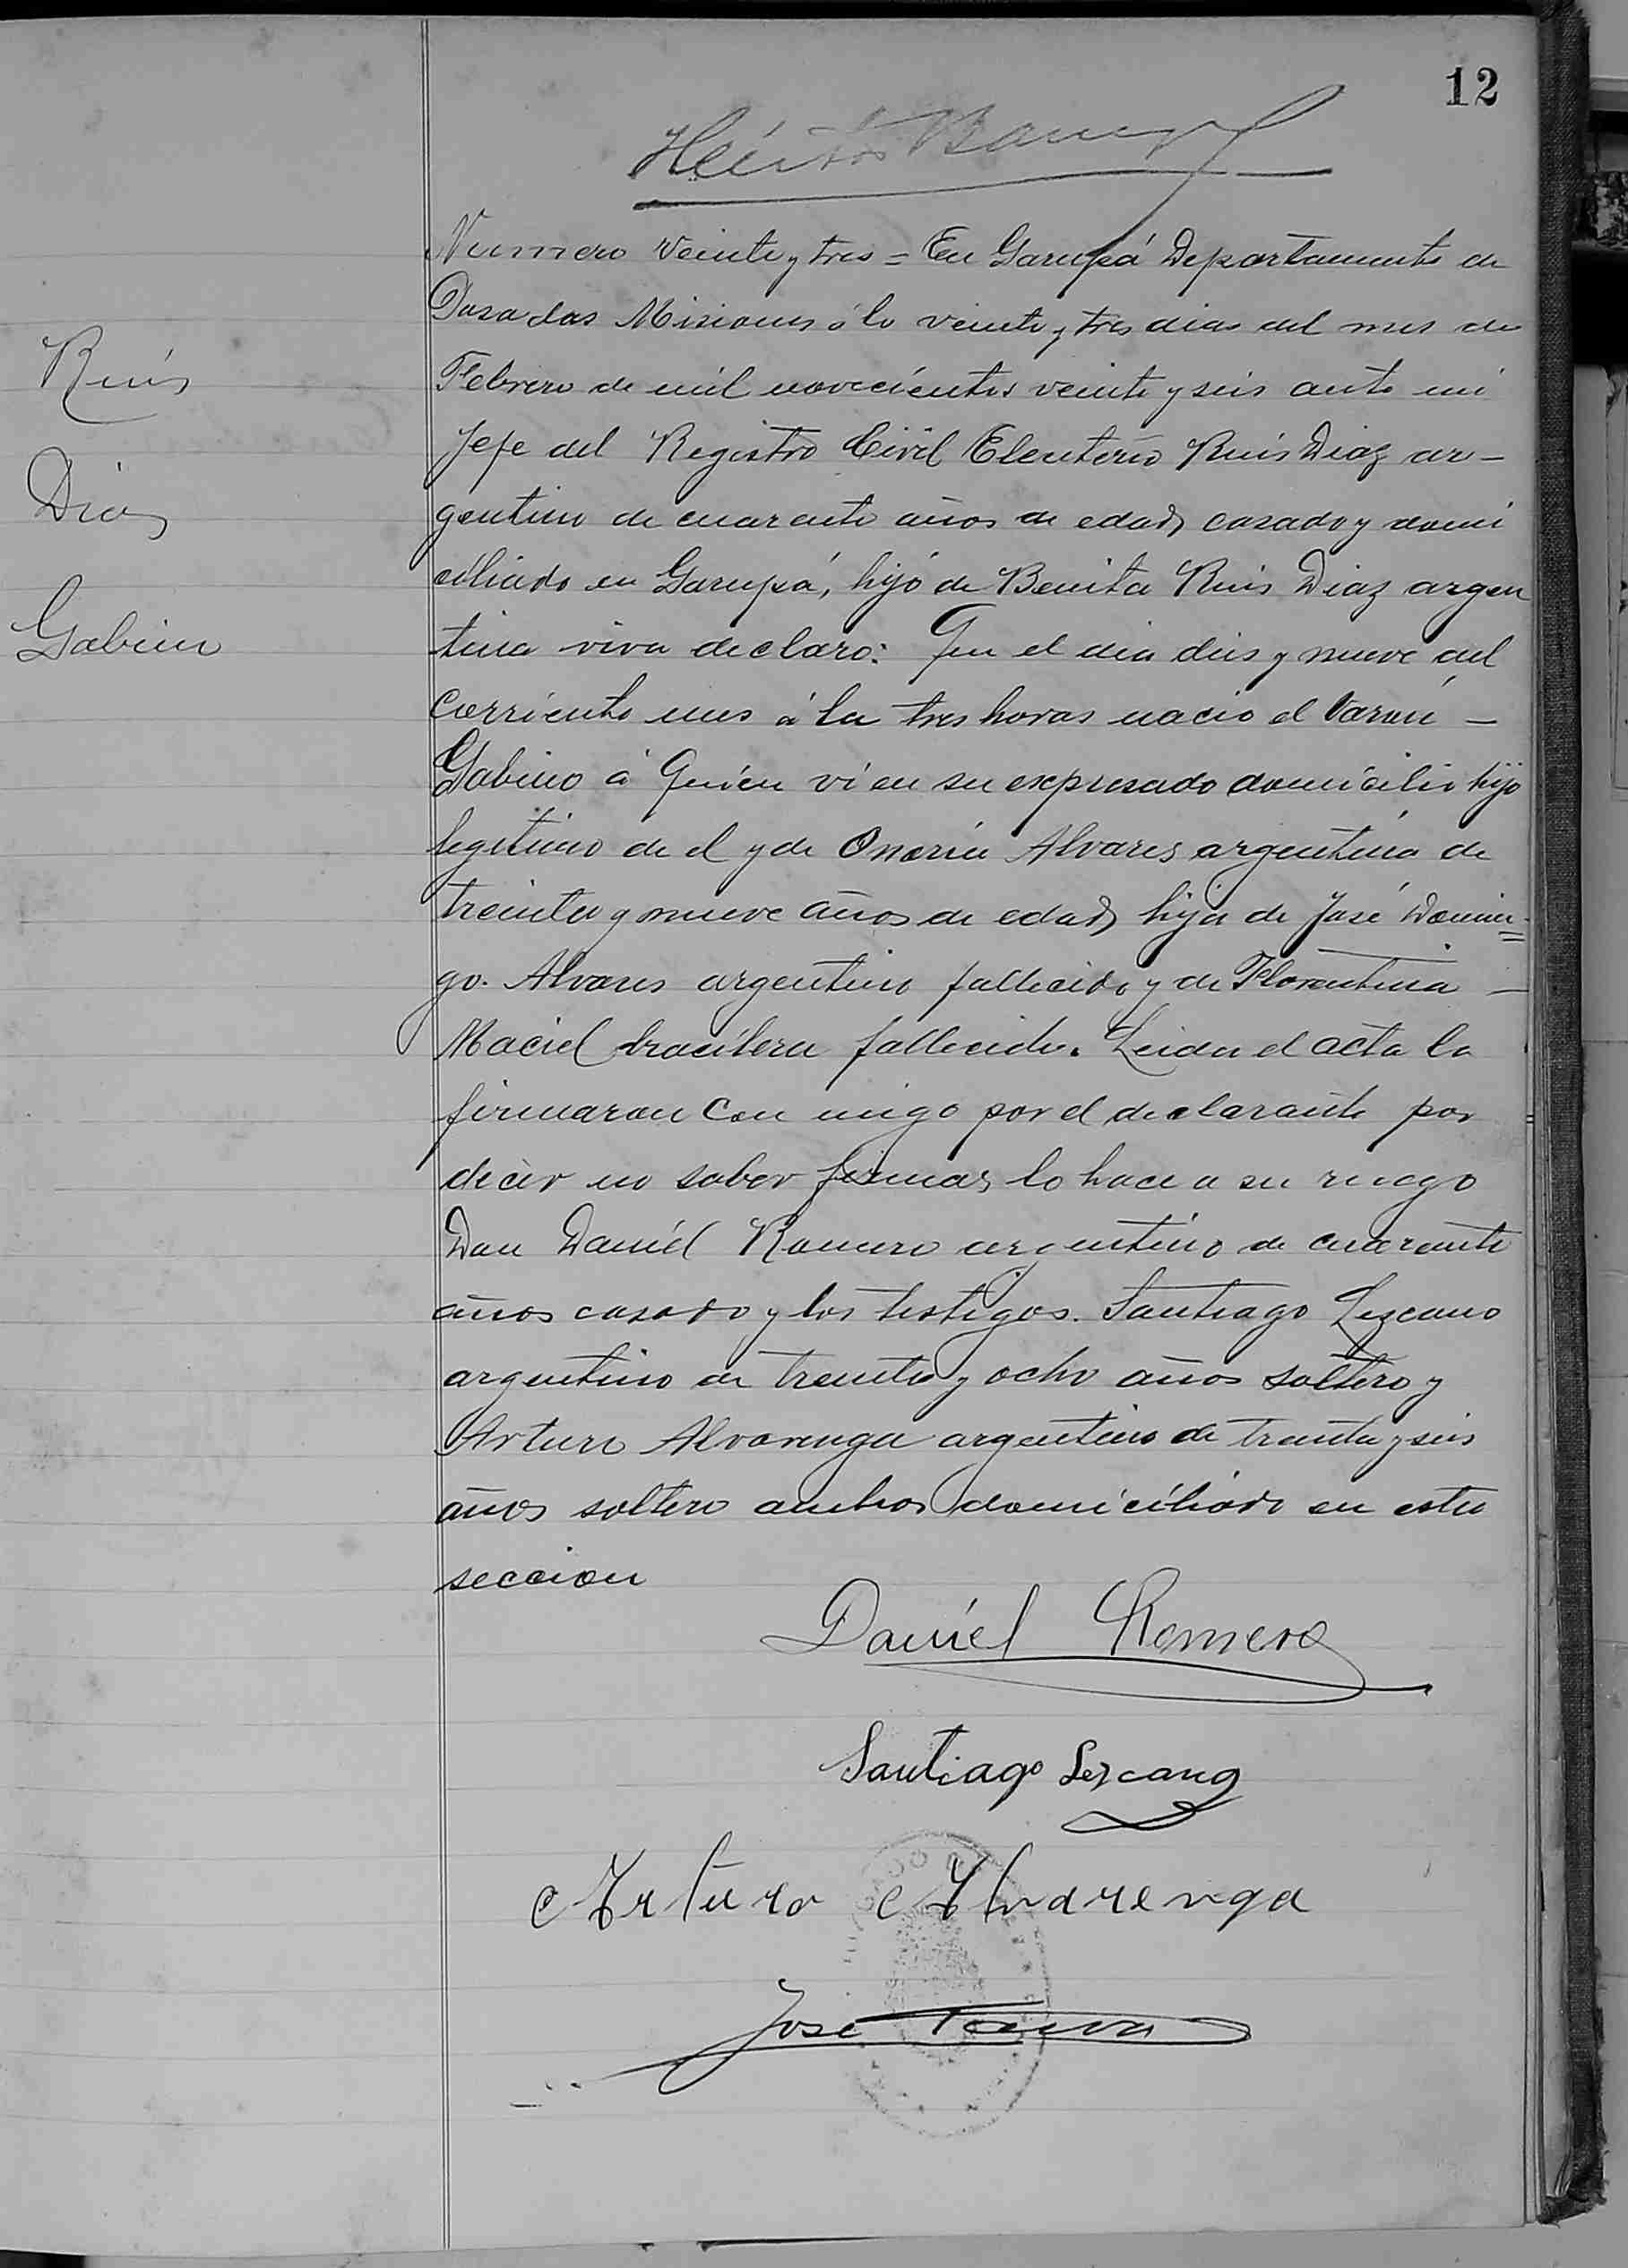 12
Ruis
Dias
Gabino
Numero veinte y tres = En Garupá Departamento de
Posadas Misiones á lo veinte y tres dias del mes de
Febrero de mil novecientos veinte y seis ante mi
Jefe del Registro Civil Eleuterio Ruis Diaz ar-
gentino de cuarenta años de edad, casado y domi
ciliado en Garupá, hijo de Benita Ruis Diaz argen
tina viva declaro: Que el dia dies y nueve del
corriente mes á la tres horas nacio el Varon —
Gabino á Quien vi en su expresado domicilio hijo
legitimo de el y de Alvares argentina de
treinta y nueve años de edad, hija de José Domin=
go. Alvares argentino fallecido y de Florentina —
Maciel brasilera fallecida. Leida el acta la
firmaron con migo por el declarante por
decir no saber firmar, lo hace a su ruego
Don Daniel Romero argentino de cuarenta
años casado y los testigos. Santiago Lezcano
argentino de treinta y ocho años soltero y
Arturo Alvarenga argentino de treinta y seis
años soltero ambos domiciliado en esta
seccion
Daniel Romero
Santiago Lezcano
Arturo Alvarenga
José